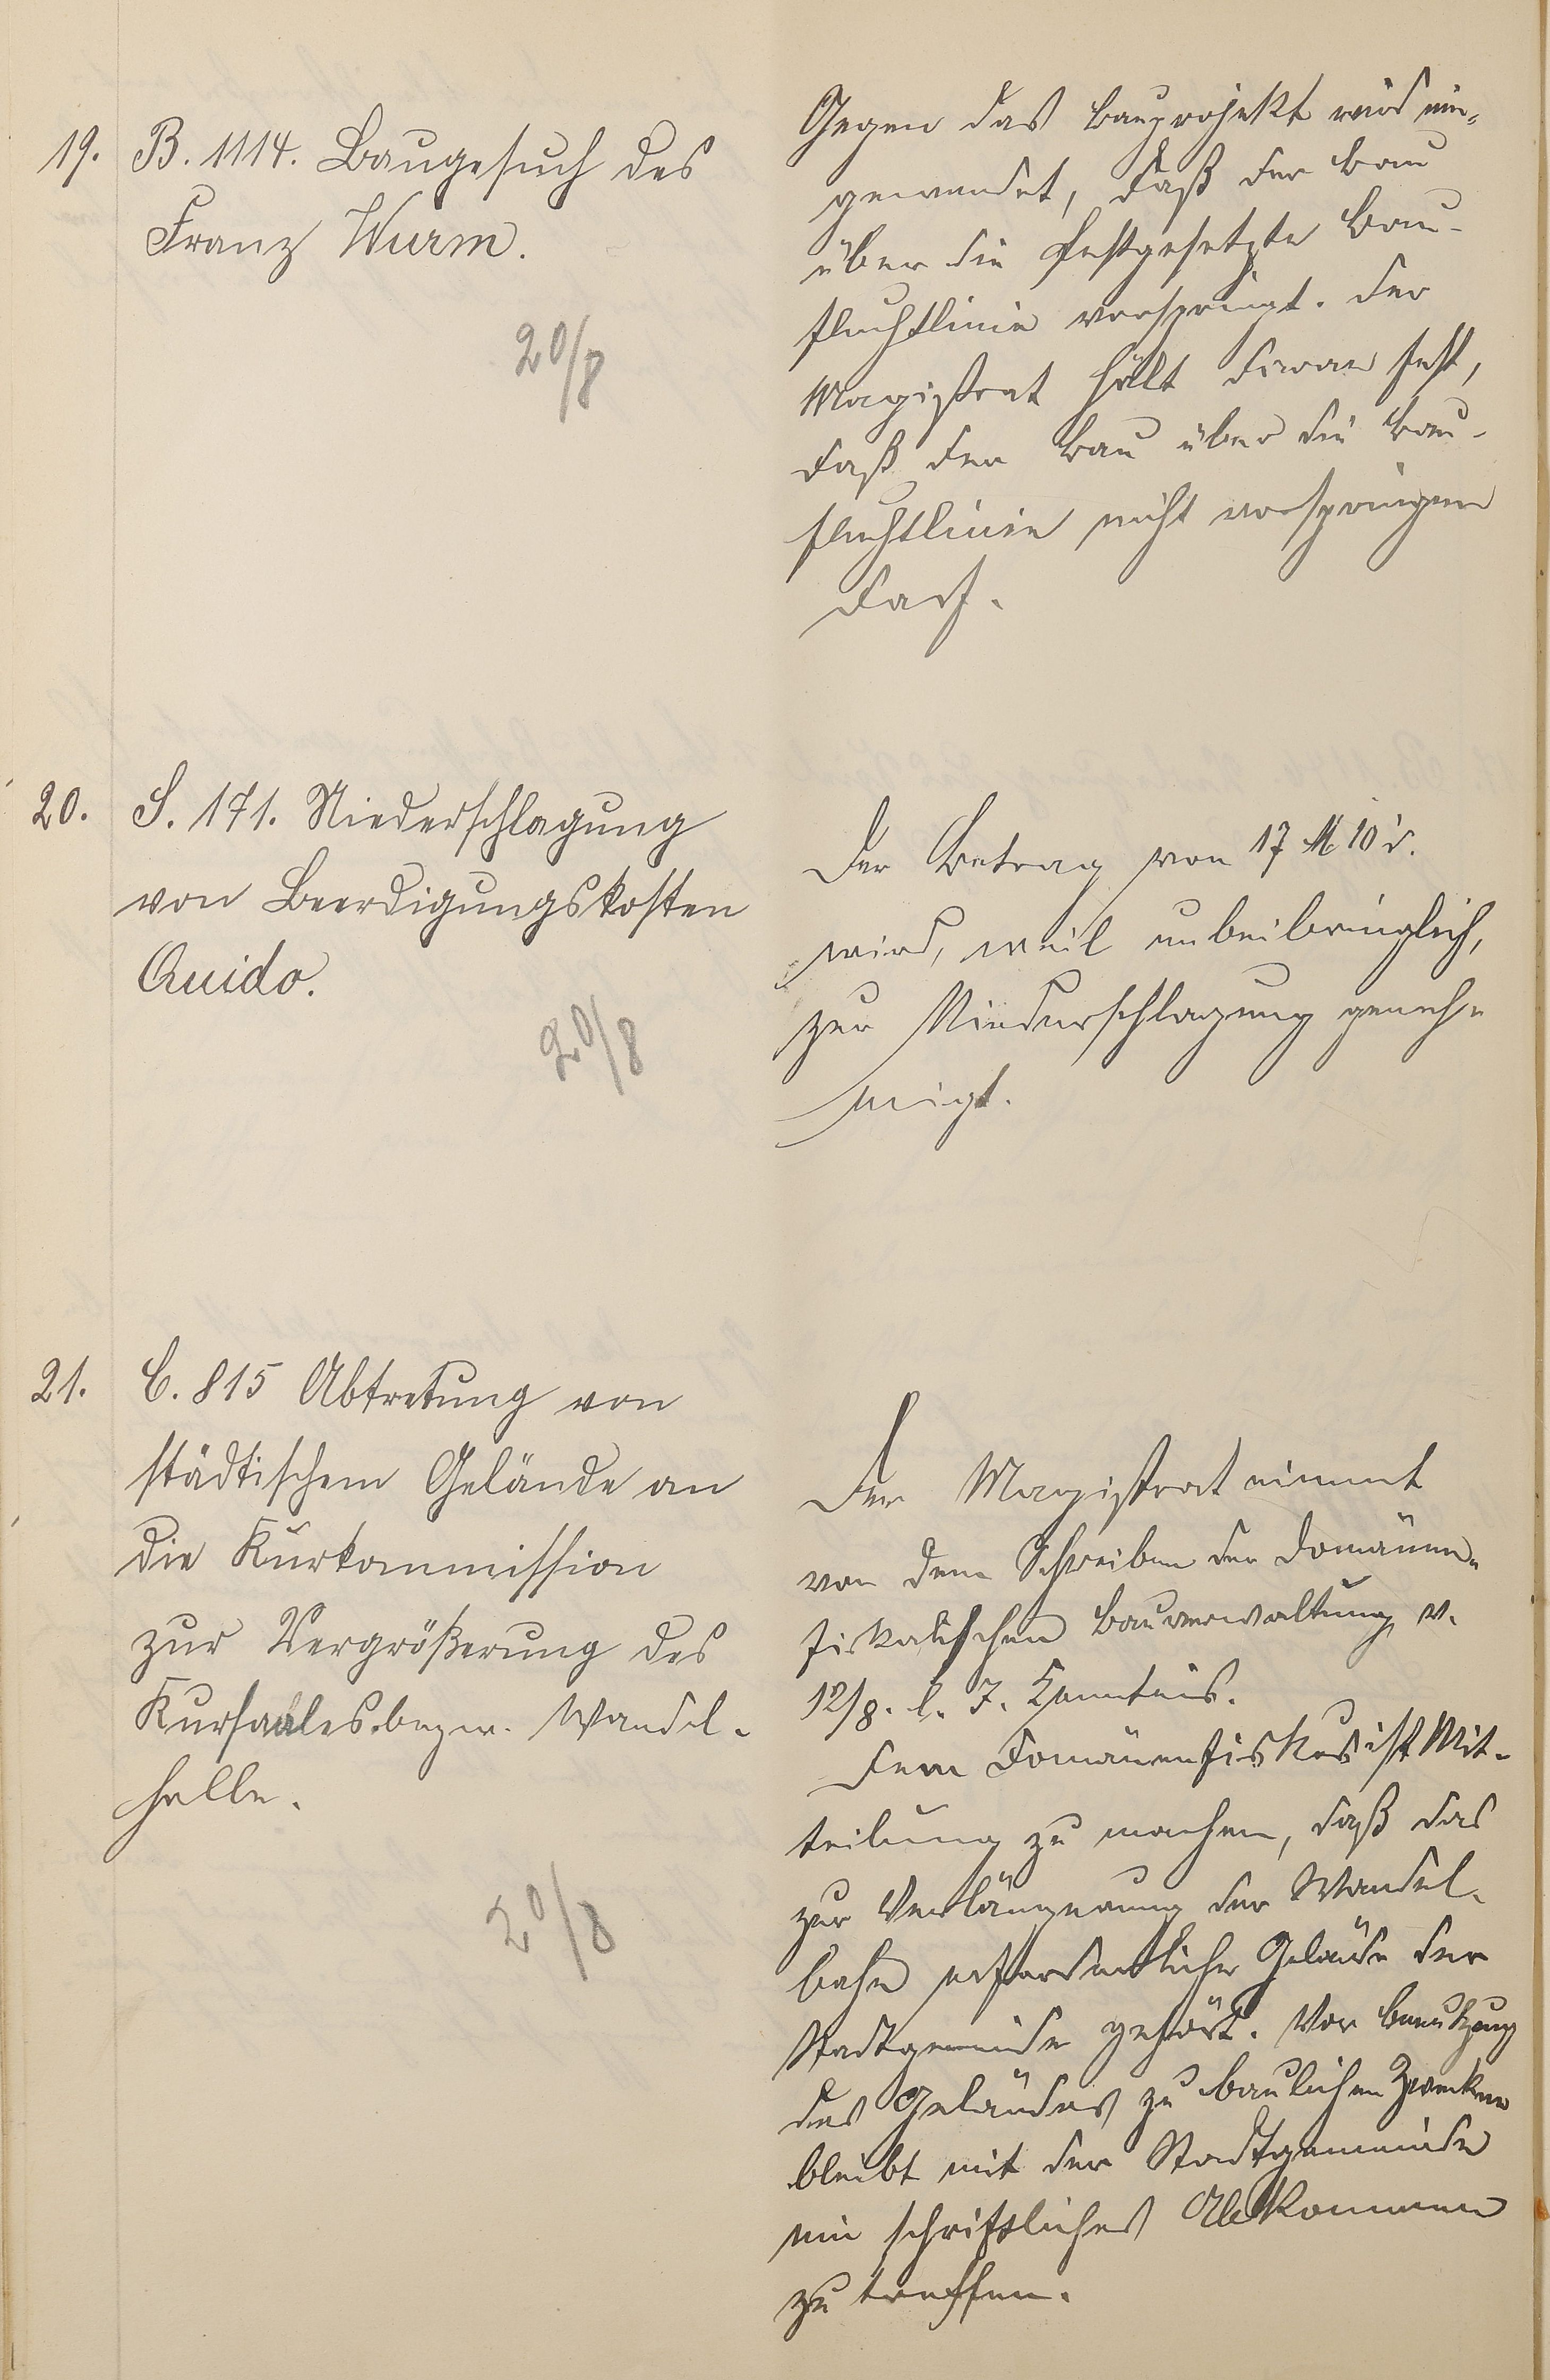 19.
B. 1114. Baugesuch des
Franz Wurm.
20/8
Gegen das Bauprojekt wird ein-
gewendet, daß der Bau
über die festgesetzte Bau-
fluchtlinie vorspringt. Der
Magistrat hält daran fest,
daß der Bau über die Bau-
fluchtlinie nicht vorspringen
darf.
20.
S. 171. Niederschlagung
von Beerdigungskosten
Quido.
20/8
Der Betrag von 17 M 10 d.
wird, weil unbeibringlich,
zur Niederschlagung geneh-
migt.
21.
C. 815 Abtretung von
städtischem Gelände an
die Kurkommission
zur Vergrößerung des
Kursaales bezw. Wandel-
halle.
20/8
Der Magistrat nimmt
von dem Schreiben der Domänen-
fiskalischen Bauverwaltung v.
12/8. l. J. Kenntnis.
Dem Domänenfiskus ist Mit-
teilung zu machen, daß das
zur Verlängerung der Wandel-
bahn erforderliche Gelände der
Stadtgemeinde gehört. Vor Benutzung
des Geländes zu baulichen Zwecken
bleibt mit der Stadtgemeinde
ein schriftliches Abkommen
zu treffen.